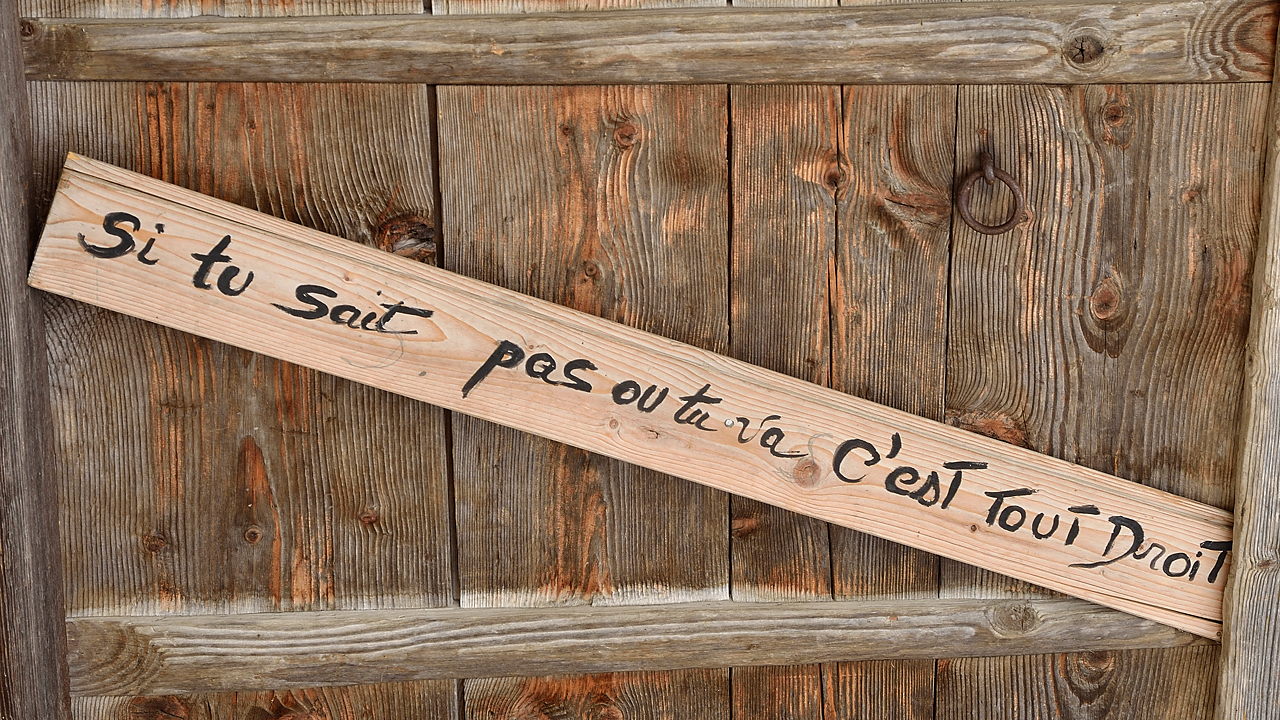 Si tu sait pas ou tu va C'est Tout Droit